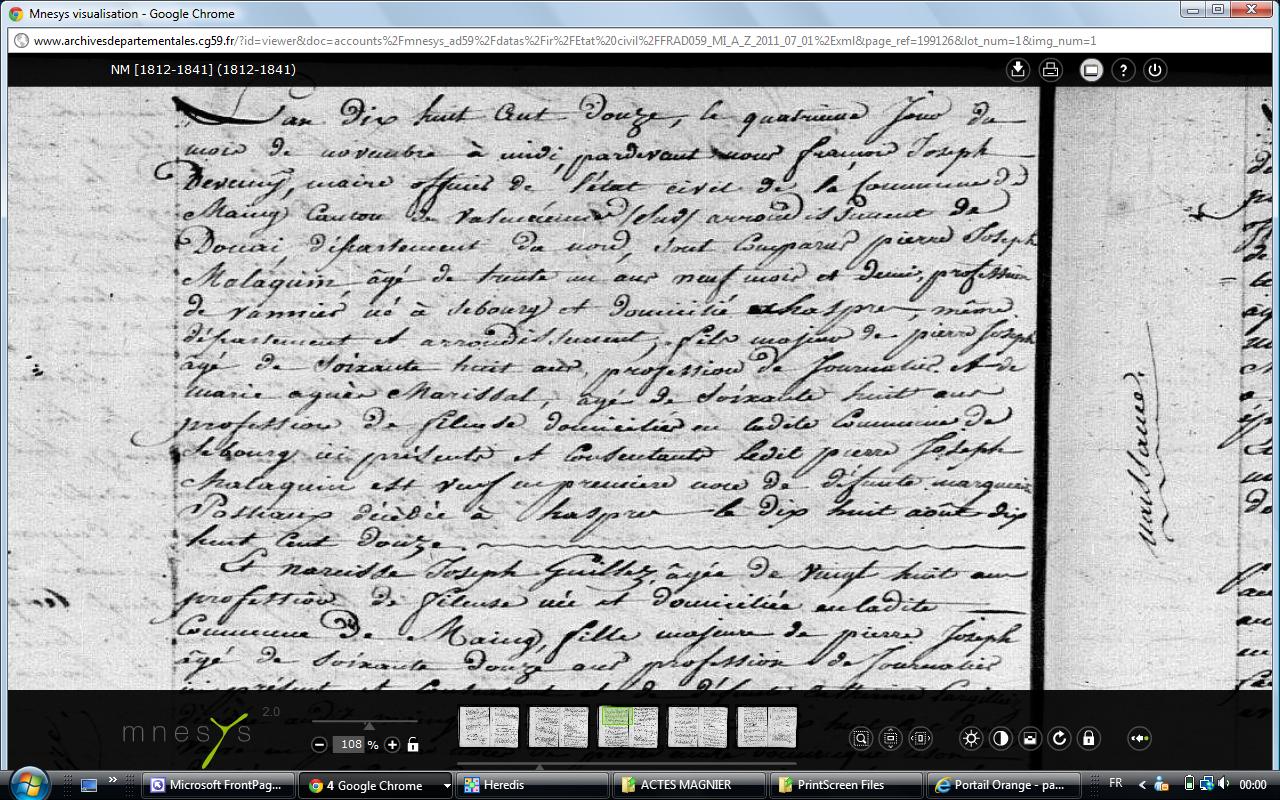 Mnesys visualisation - Google Chrome
www.archivesdepartementales.cg59.fr/?id=viewer&doc=accounts%2Fmnesys_ad59%2Fdatas%2Fir%2FEtat%20civil%2FFRAD059_MI_A_Z_2011_07_01%2Exml&page_ref=199126&lot_num=1&img_num=1
NM [1812-1841] (1812-1841)
L'an dix huit Cent Douze, le quatrieme Jour du
mois de novembre à midi, pardevant nous françois Joseph
maire officier de l'état civil de la Commune de
Maing Canton de valenciennes (sud) arrondissement de
Douai, département du nord, sont Comparus pierre Joseph
Malaquin, âgé de trente un ans neuf mois et demi, profession
de vannier né à Sebourg et domicilié a haspres, même
département et arrondissement, fils majeur de pierre Joseph
âgé de Soixante huit ans, profession de Journalier. Et de
marie agnès Marissal, agé de Soixante huit ans
profession de fileuse domiciliés en ladite Commune de
Sebourg ici présents et Consentants ledit pierre Joseph
Malaquin est veuf en premiere noce de défunte marguerite
décédée à haspres le dix huit août dix
huit Cent douze.
Et narcisse Joseph Guillez, âgée de vingt huit ans
profession de fileuse née et domiciliée en ladite
Commune de Maing, fille majeure de pierre Joseph
âgé de soixante douze ans profession de Journalier
ici présent et Consentant et de défunte
naissance
mnesys 2.0
108 %
Microsoft FrontPag...
4 Google Chrome
Heredis
ACTES MAGNIER
PrintScreen Files
Portail Orange - pa...
FR
00:00